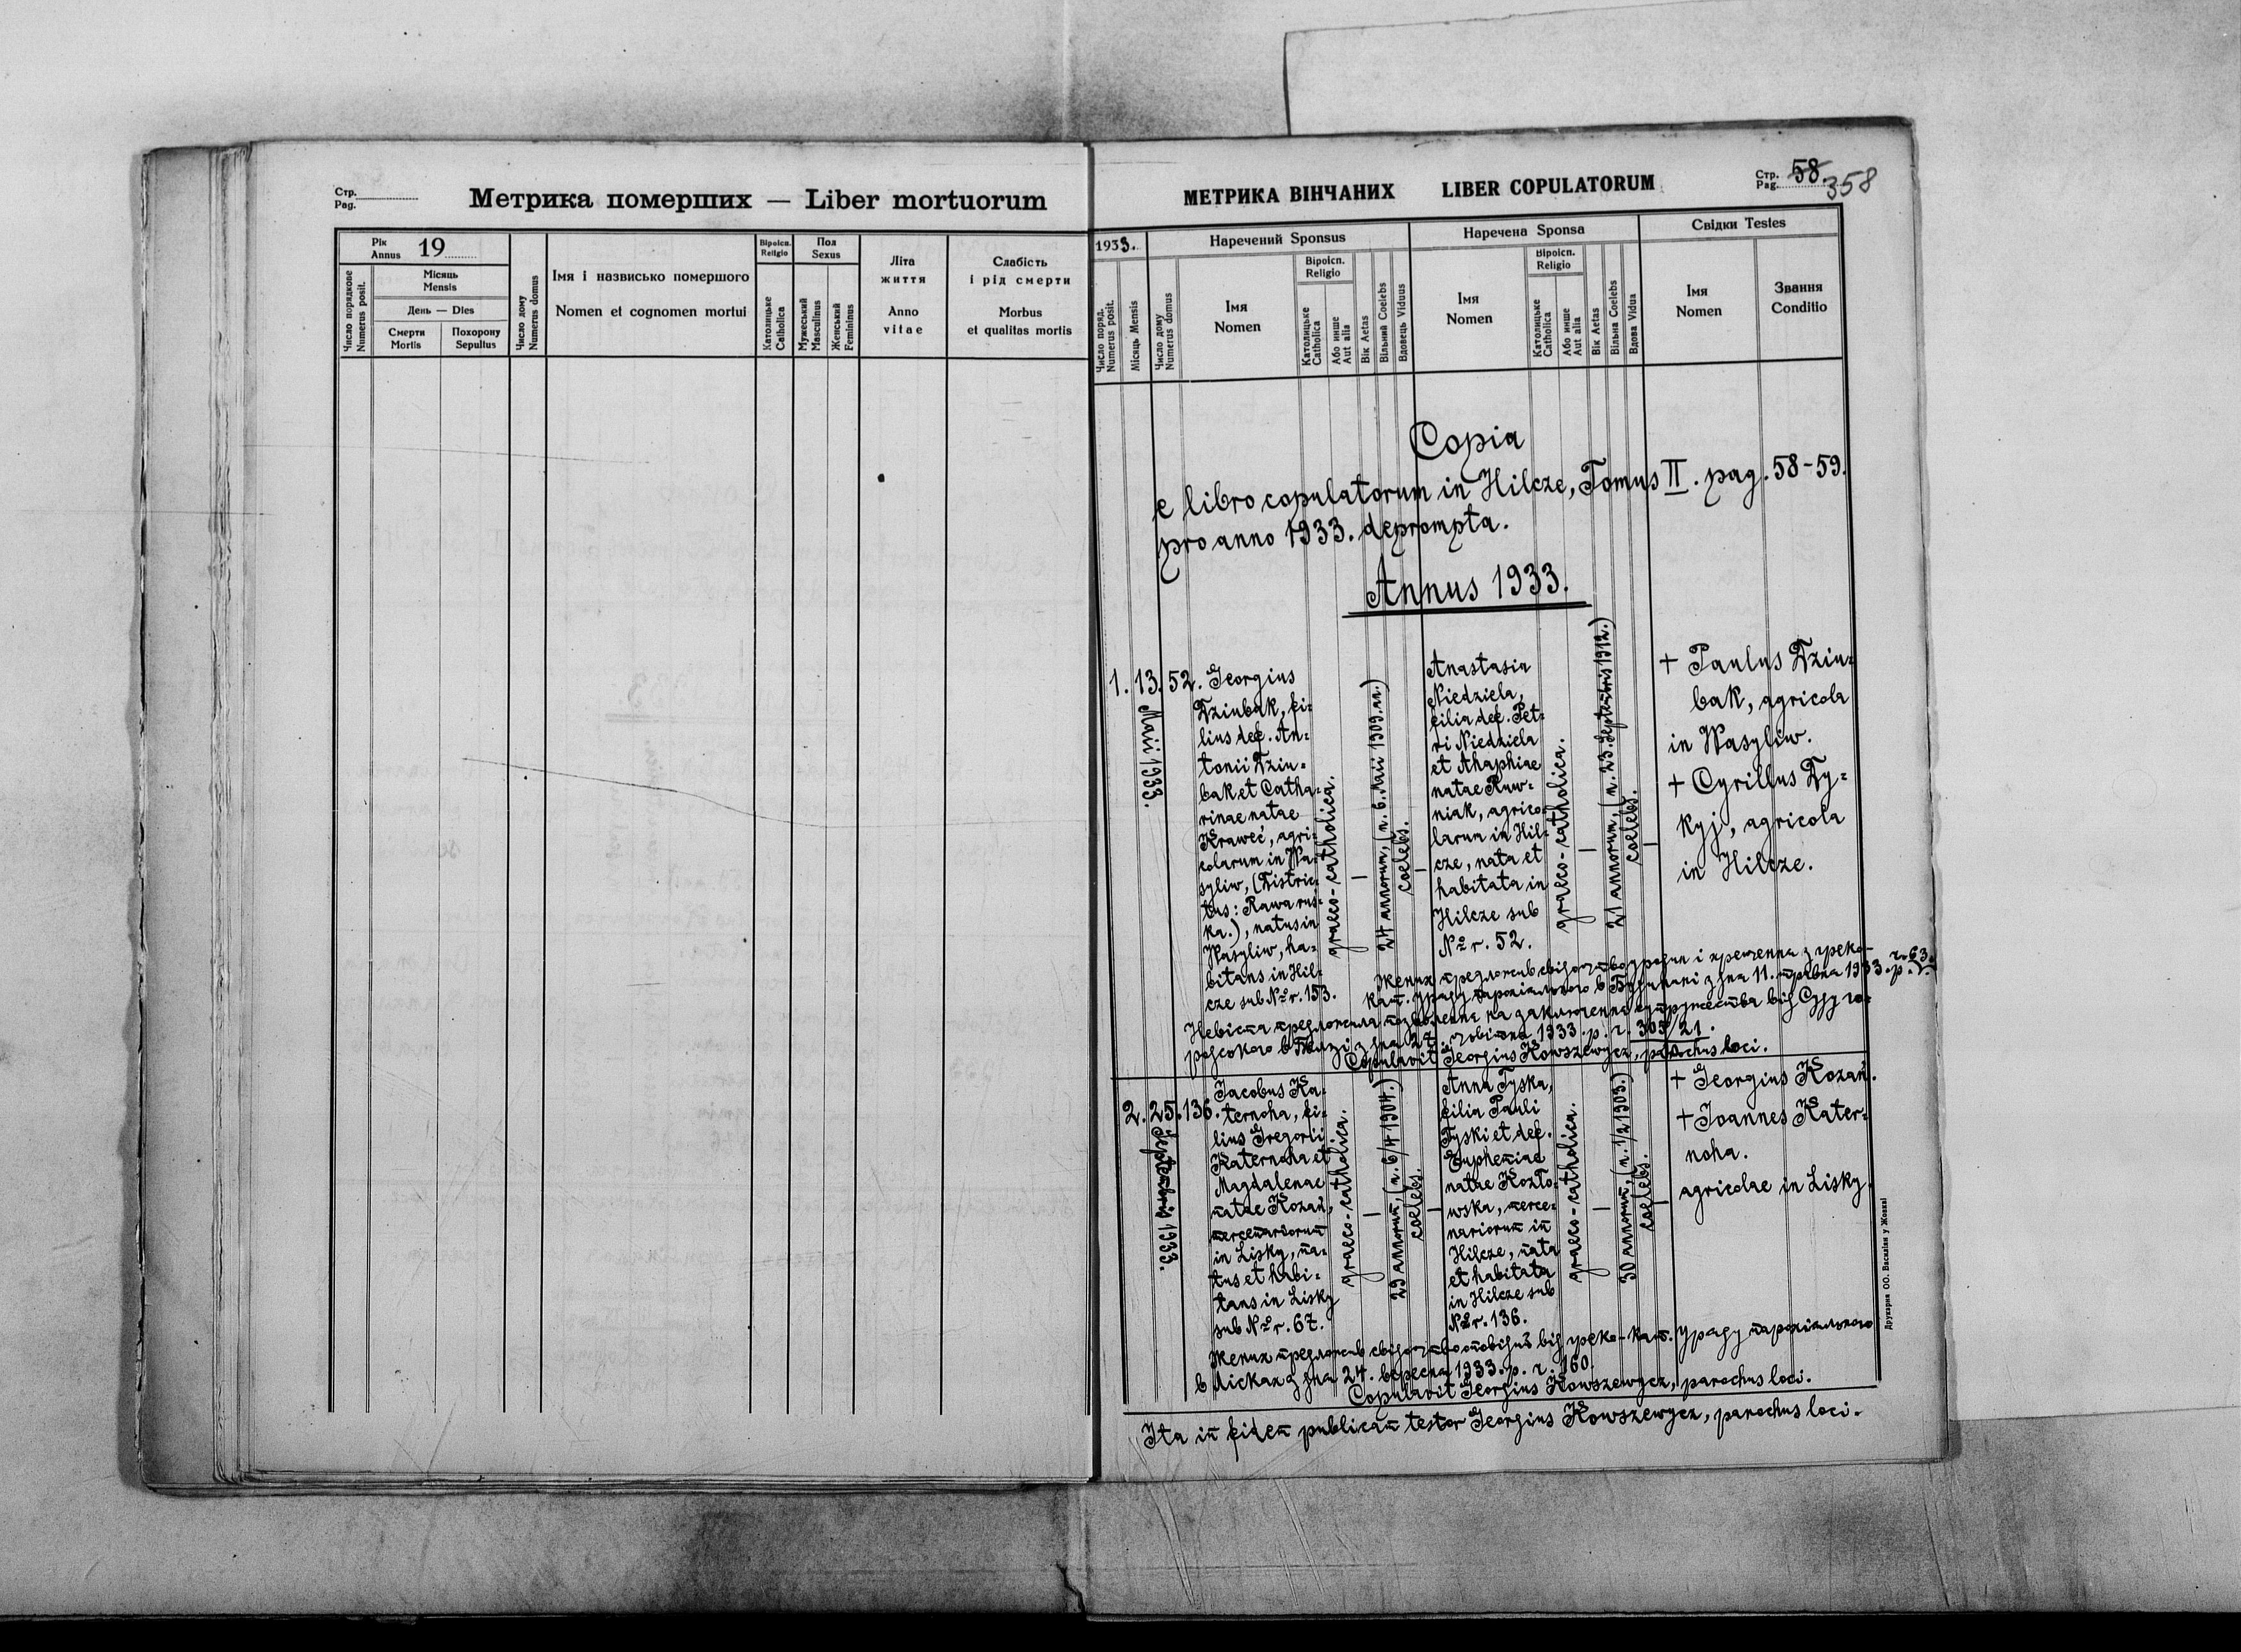 Стр.
Pag.
Метрика померших — Liber mortuorum
Рік
Annus 19
Число порядкове
Numerus posit.
Місяць
Mensis
День — Dies
Смерти
Mortis
Похорону
Sepultus
Число дому
Numerus domus
Імя і назвисько помершого
Nomen et cognomen mortui
Віроісп.
Religio
Католицьке
Catholica
Пол
Sexus
Мужеський
Masculinus
Женський
Femininus
Літа
життя
Anno
vitae
Слабість
і рід смерти
Morbus
et qualitas mortis
МЕТРИКА ВІНЧАНИХ LIBER COPULATORUM
Стр.
Pag. 58
358
1933.
Число поряд.
Numerus posit.
Місяць Mensis
Число дому
Numerus domus
Наречений Sponsus
Імя
Nomen
Віроісп.
Religio
Католицьке
Catholica
Або инше
Aut alia
Вік Aetas
Вільний Coelebs
Вдовець Viduus
Наречена Sponsa
Імя
Nomen
Віроісп.
Religio
Католицьке
Catholica
Або инше
Aut alia
Вік Aetas
Вільна Coelebs
Вдова Vidua
Свідки Testes
Імя
Nomen
Звання
Conditio
Copia
e libro copulatorum in Hilcze, Tomus II. pag. 58-59.
pro anno 1933. deprompta.
Annus 1933.
1. 13. 52.
Maii 1933.
Georgius
Dziubak, fi-
lius def. An-
tonii Dziu-
bak et Catha-
rinae natae
Kraweć, agri-
colarum in Wa-
syliw, (Distric-
tus: Rawa rus-
ka.), natus in
Wasyliw, ha-
bitans in Hil-
cze sub № r. 153.
graeco-catholica.
—
24 annorum, (n. 6. Maii 1909. aa.)
coelebs.
—
Anastasia
Niedziela,
filia def. Pet-
ri Niedziela
et Ahaphiae
natae Ruw-
niak, agrico-
larum in Hil-
cze, nata et
habitata in
Hilcze sub
№ r. 52.
graeco-catholica.
—
21 annorum, (n. 23. Septembris 1912.)
coelebs.
—
+ Paulus Dziu-
bak, agricola
in Wasyliw.
+ Cyrillus Dy-
kyj, agricola
in Hilcze.
Жених предложив свідоцтво уродин і крещення з греко-
кат. уряду парохіяльного в зі дня 11. травня 1933. р. ч. 63.
Невіста предложила позволення на заключення супружества від Суду го-
родського в Белзі з дня 27. 1933. р. ч. 305/21.
Copulavit Georgius Kowszewycz, parochus loci.
2. 25. 136.
Septembris 1933.
Jacobus Ka-
ternoha, fi-
lius Gregorii
Katernoha et
Magdalenae
natae Kozań,
mercenariorum
in Lisky, na-
tus et habi-
tans in Lisky
sub № r. 67.
graeco-catholica.
—
29 annorum, (n. 6/4 1904.)
coelebs.
—
Anna Tyska,
filia Pauli
Tyski et def.
Euphemiae
natae Kozło-
wska, merce-
nariorum in
Hilcze, nata
et habitata
in Hilcze sub
№ r. 136.
graeco-catholica.
—
30 annorum, (n. 1/2 1903.)
coelebs.
—
+ Georgius Kozań.
+ Joannes Kater-
noha.
agricolae in Lisky.
Жених предложив свідоцтво оповідий від греко-кат. Уряду парохіяльного
в Лісках з дня 24. вересня 1933. р. ч. 160.
Copulavit Georgius Kowszewycz, parochus loci.
Ita in fidem publicam testor Georgius Kowszewycz, parochus loci.
Друкарня ОО. Василіян у Жовкві